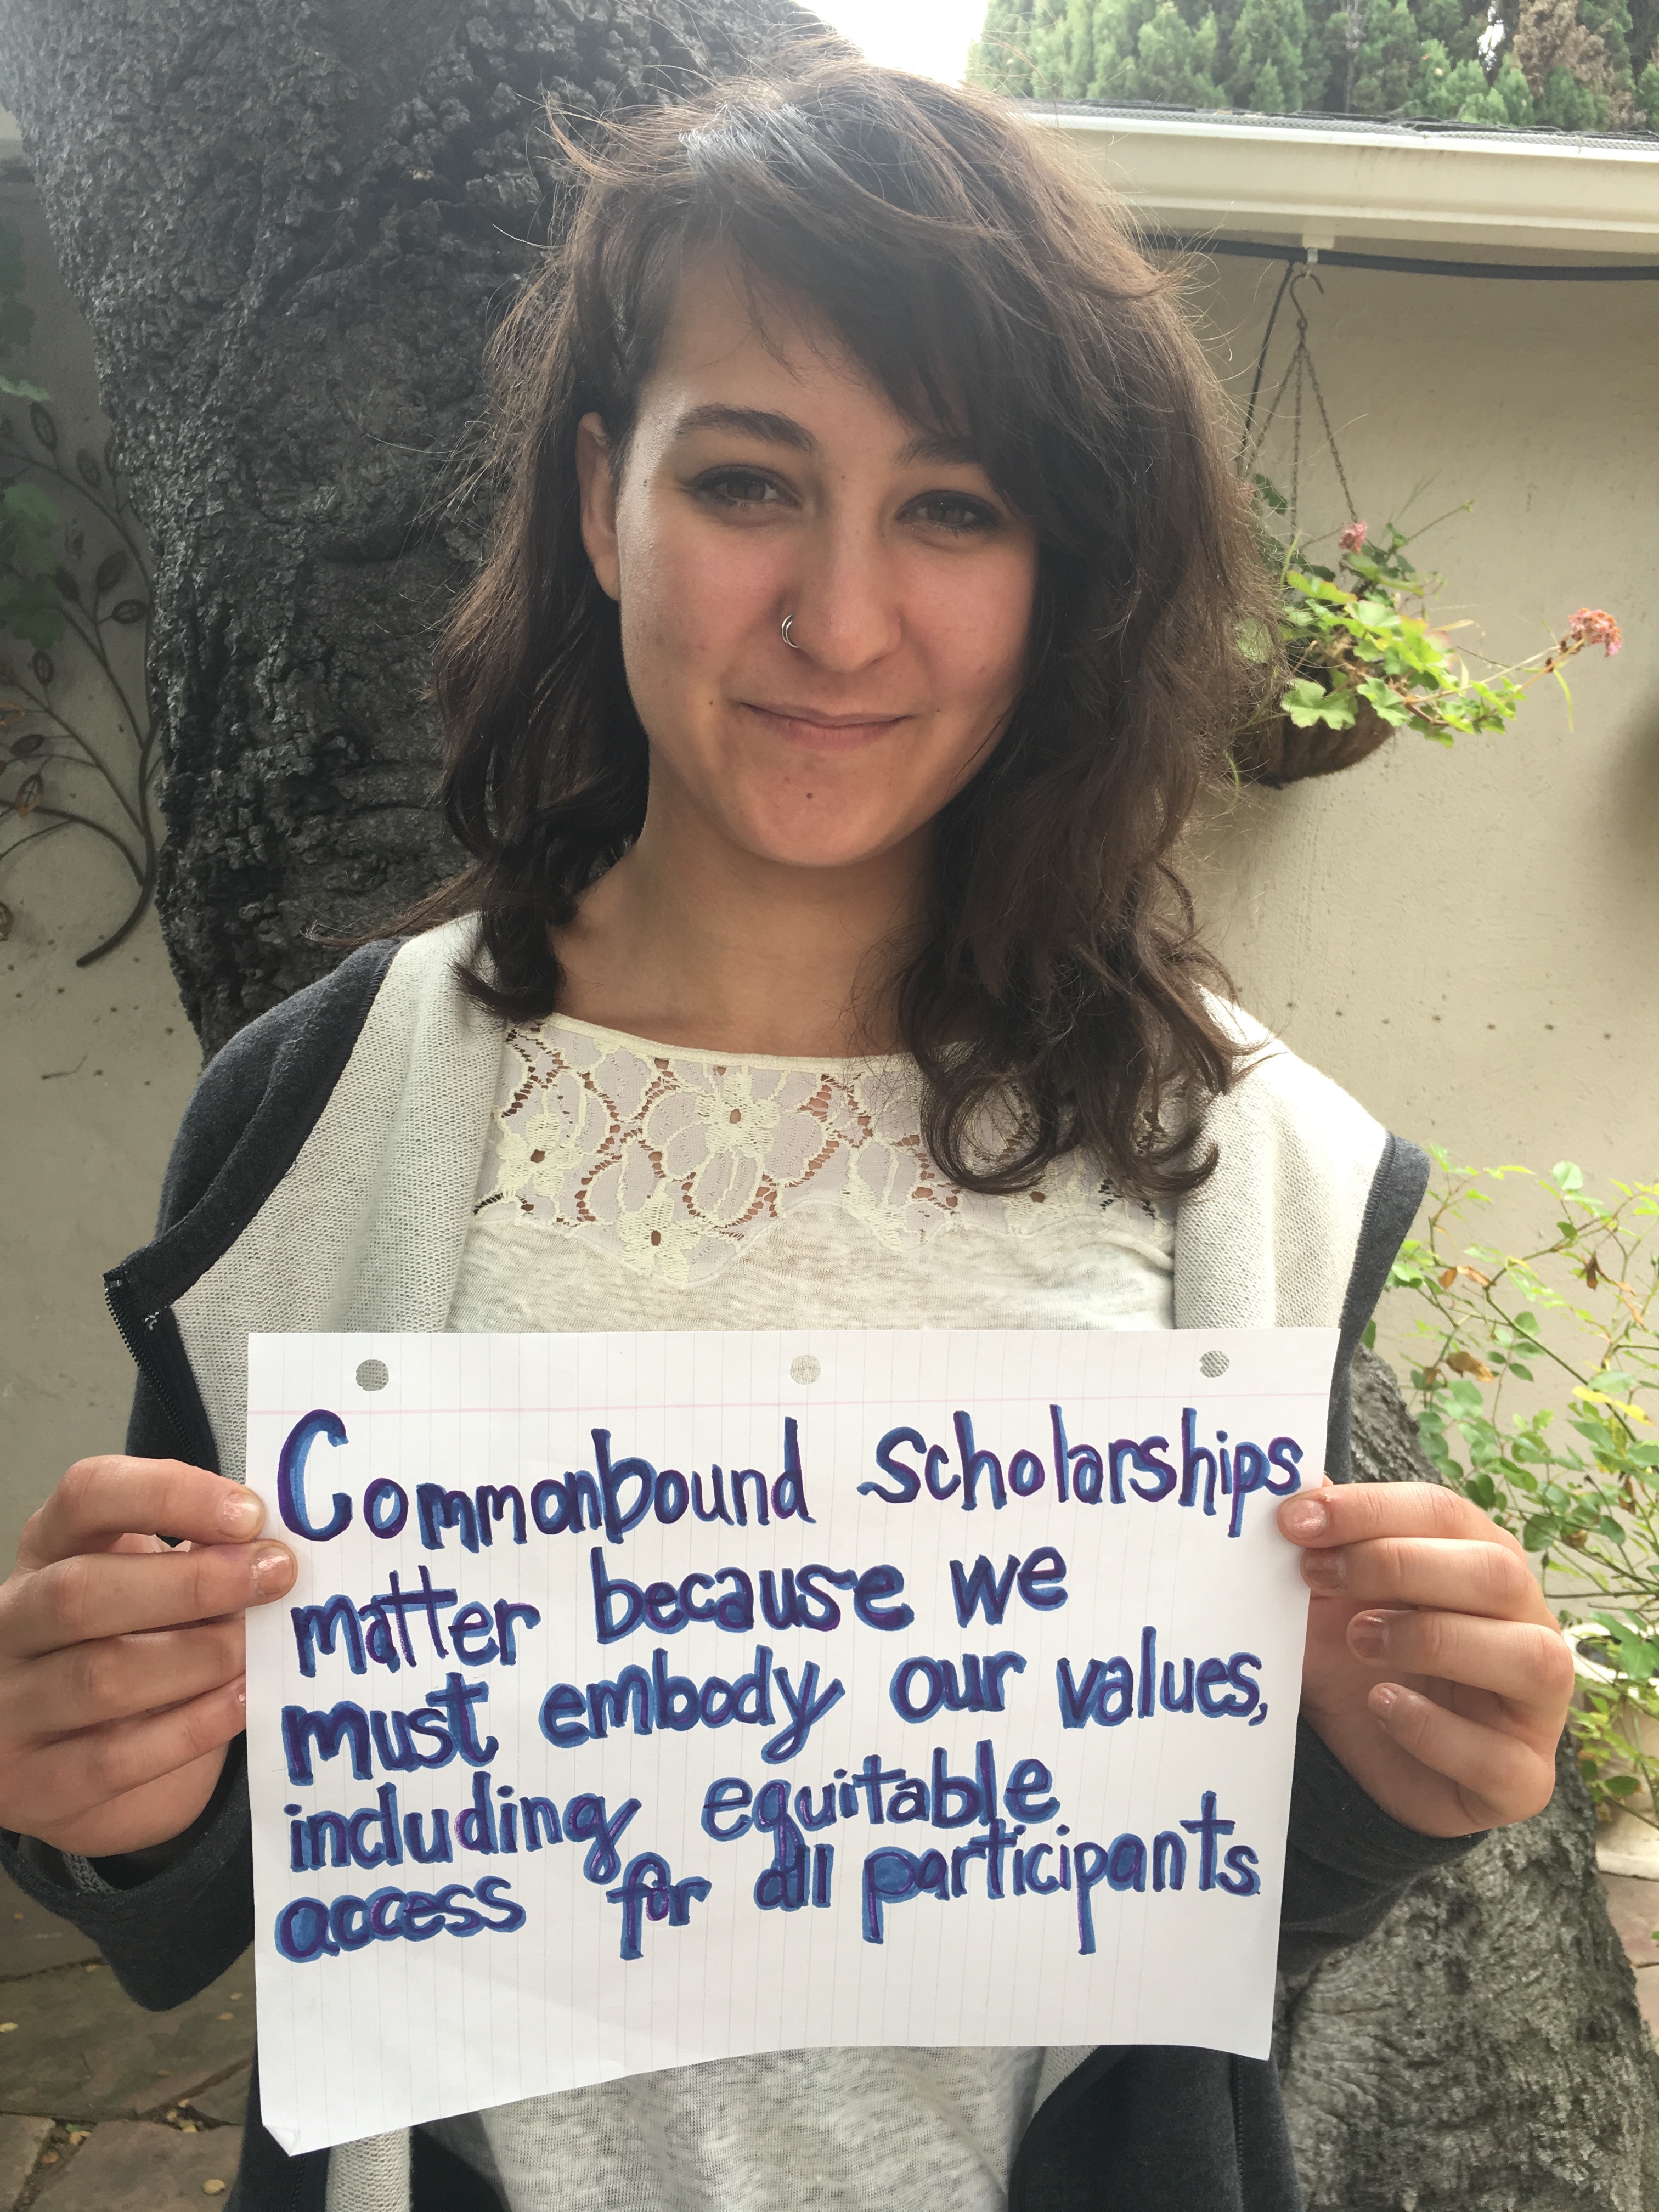 Commonbound scholarships
matter because we
must embody our values,
including equitable
access for all participants